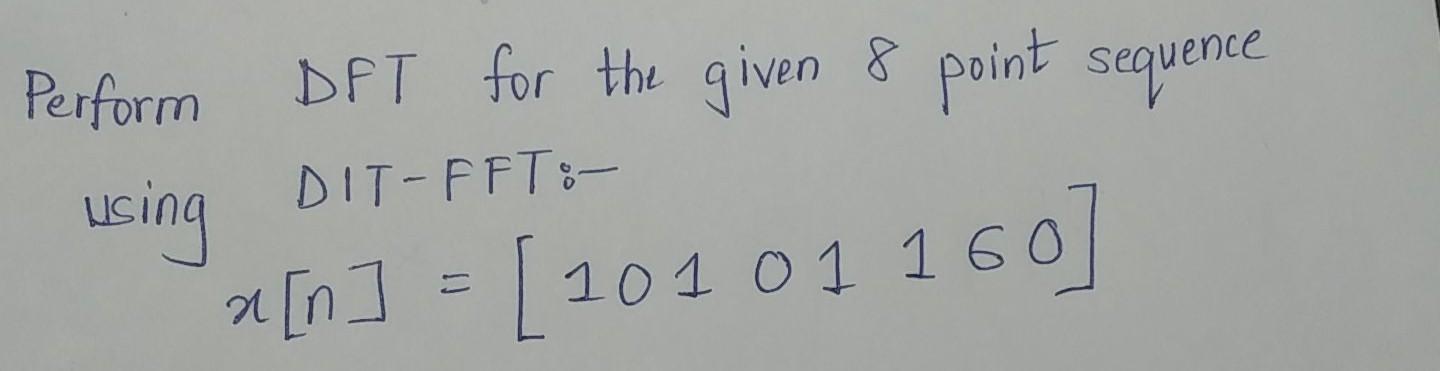 Perform DFT for the given 8 point sequence
using DIT-FFT:-
x[n] = [1 0 1 0 1 1 6 0]